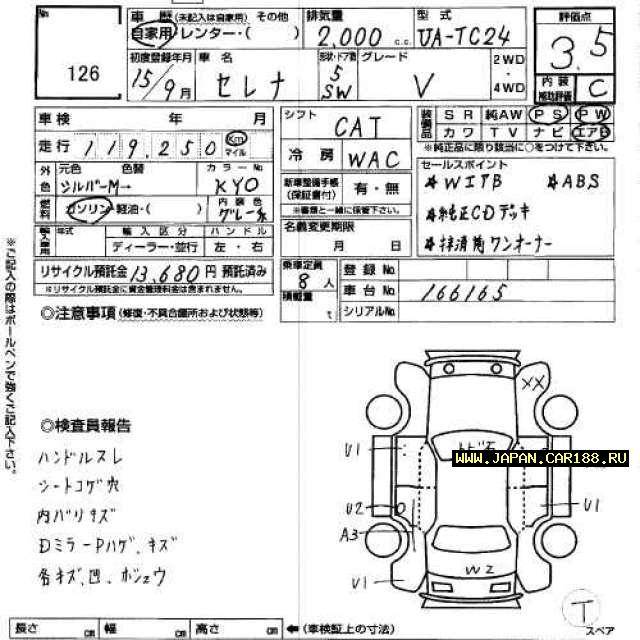 No
126
車歴 (未記入は自家用) その他
自家用・レンター・( )
排気量
2.000 c.c.
型式
UA-TC24
評価点
3.5
内装補助評価
C
初度登録年月
15/9月
車名
セレナ
形状・ドア数
5
SW
グレード
V
2WD
4WD
車検 年 月
走行 119.250 Km マイル
シフト
CAT
冷房 WAC
装備品
SR 純AW PS PW
カワ TV ナビ エアB
※純正品に限り該当に○をつけて下さい。
外色
元色 色替
シルバーM→
カラーNo
KYO
燃料
ガソリン・軽油・( )
内装色
グレー系
新車整備手帳
(保証書付)
有・無
※書類と一緒に保管下さい。
セールスポイント
★WエアB ★ABS
★純正CDデッキ
輸入車用
年式 輸入区分 ハンドル
ディーラー・並行 左・右
名義変更期限
月 日
リサイクル預託金 13,680円 預託済み
※リサイクル預託金に資金管理料金は含まれません。
乗車定員
8人
積載量
t
登録No
車台No 166165
シリアルNo
◎注意事項 (修復・不具合箇所および状態等)
※ご記入の際はボールペンで強くご記入下さい。
◎検査員報告
ハンドルスレ
シートコゲ穴
内バリキズ
DミラーPハゲ、キズ
各キズ、凹、ボシュウ
XX
トビ石
U1
WWW.JAPAN.CAR188.RU
U2
U1
A3
W2
U1
T
スペア
長さ cm 幅 cm 高さ cm ←(車検証上の寸法)